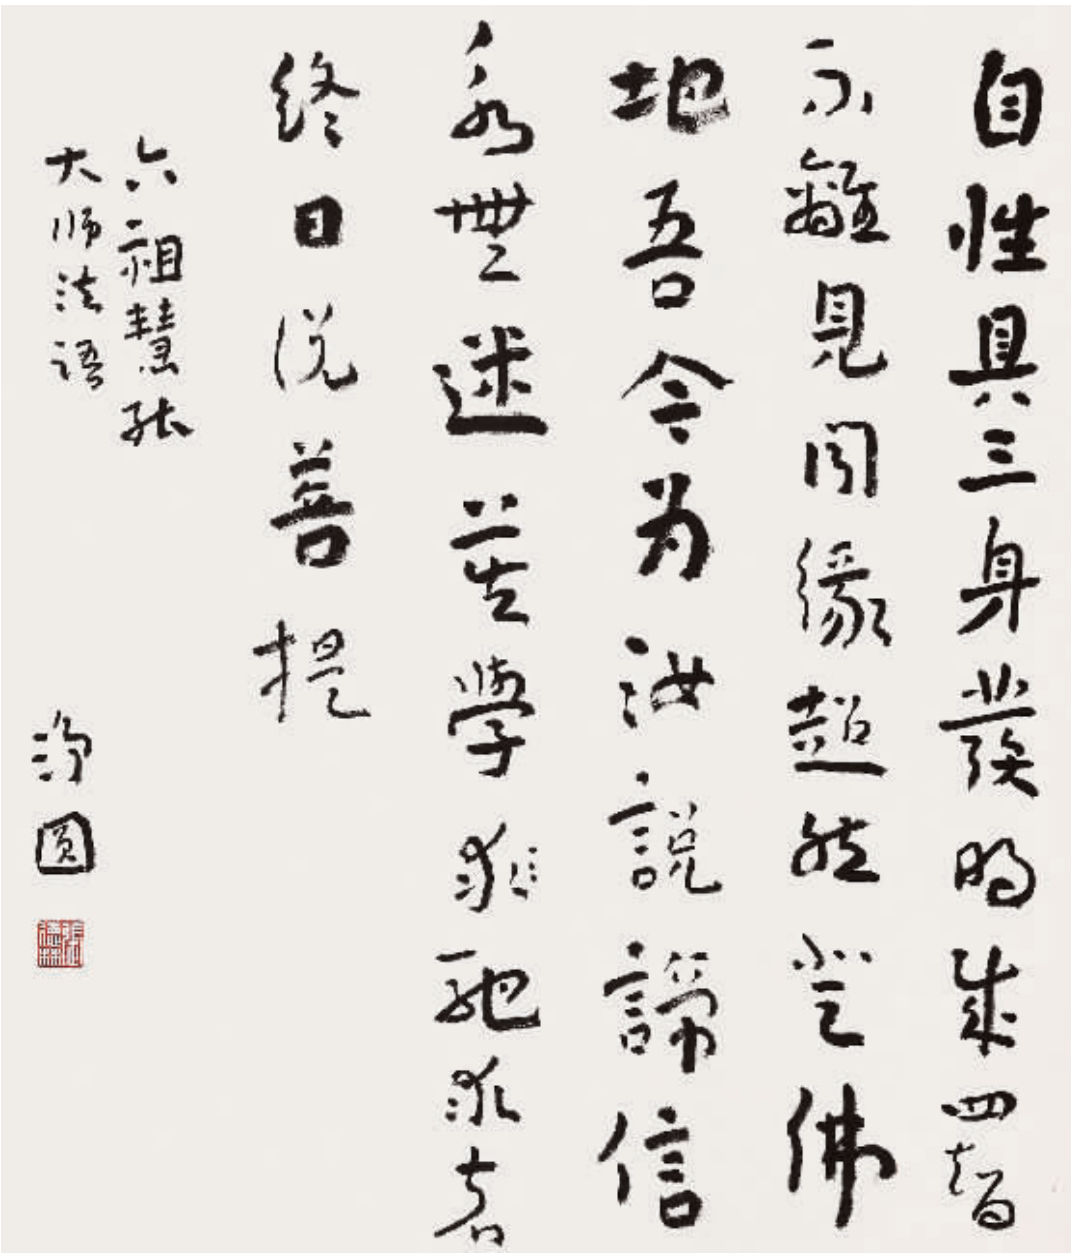 自性具三身發明成四智
不離見聞緣超然登佛
地吾今为汝說諦信
永無迷莫學馳求者
終日说菩提
六祖慧能
大师法语
净圆